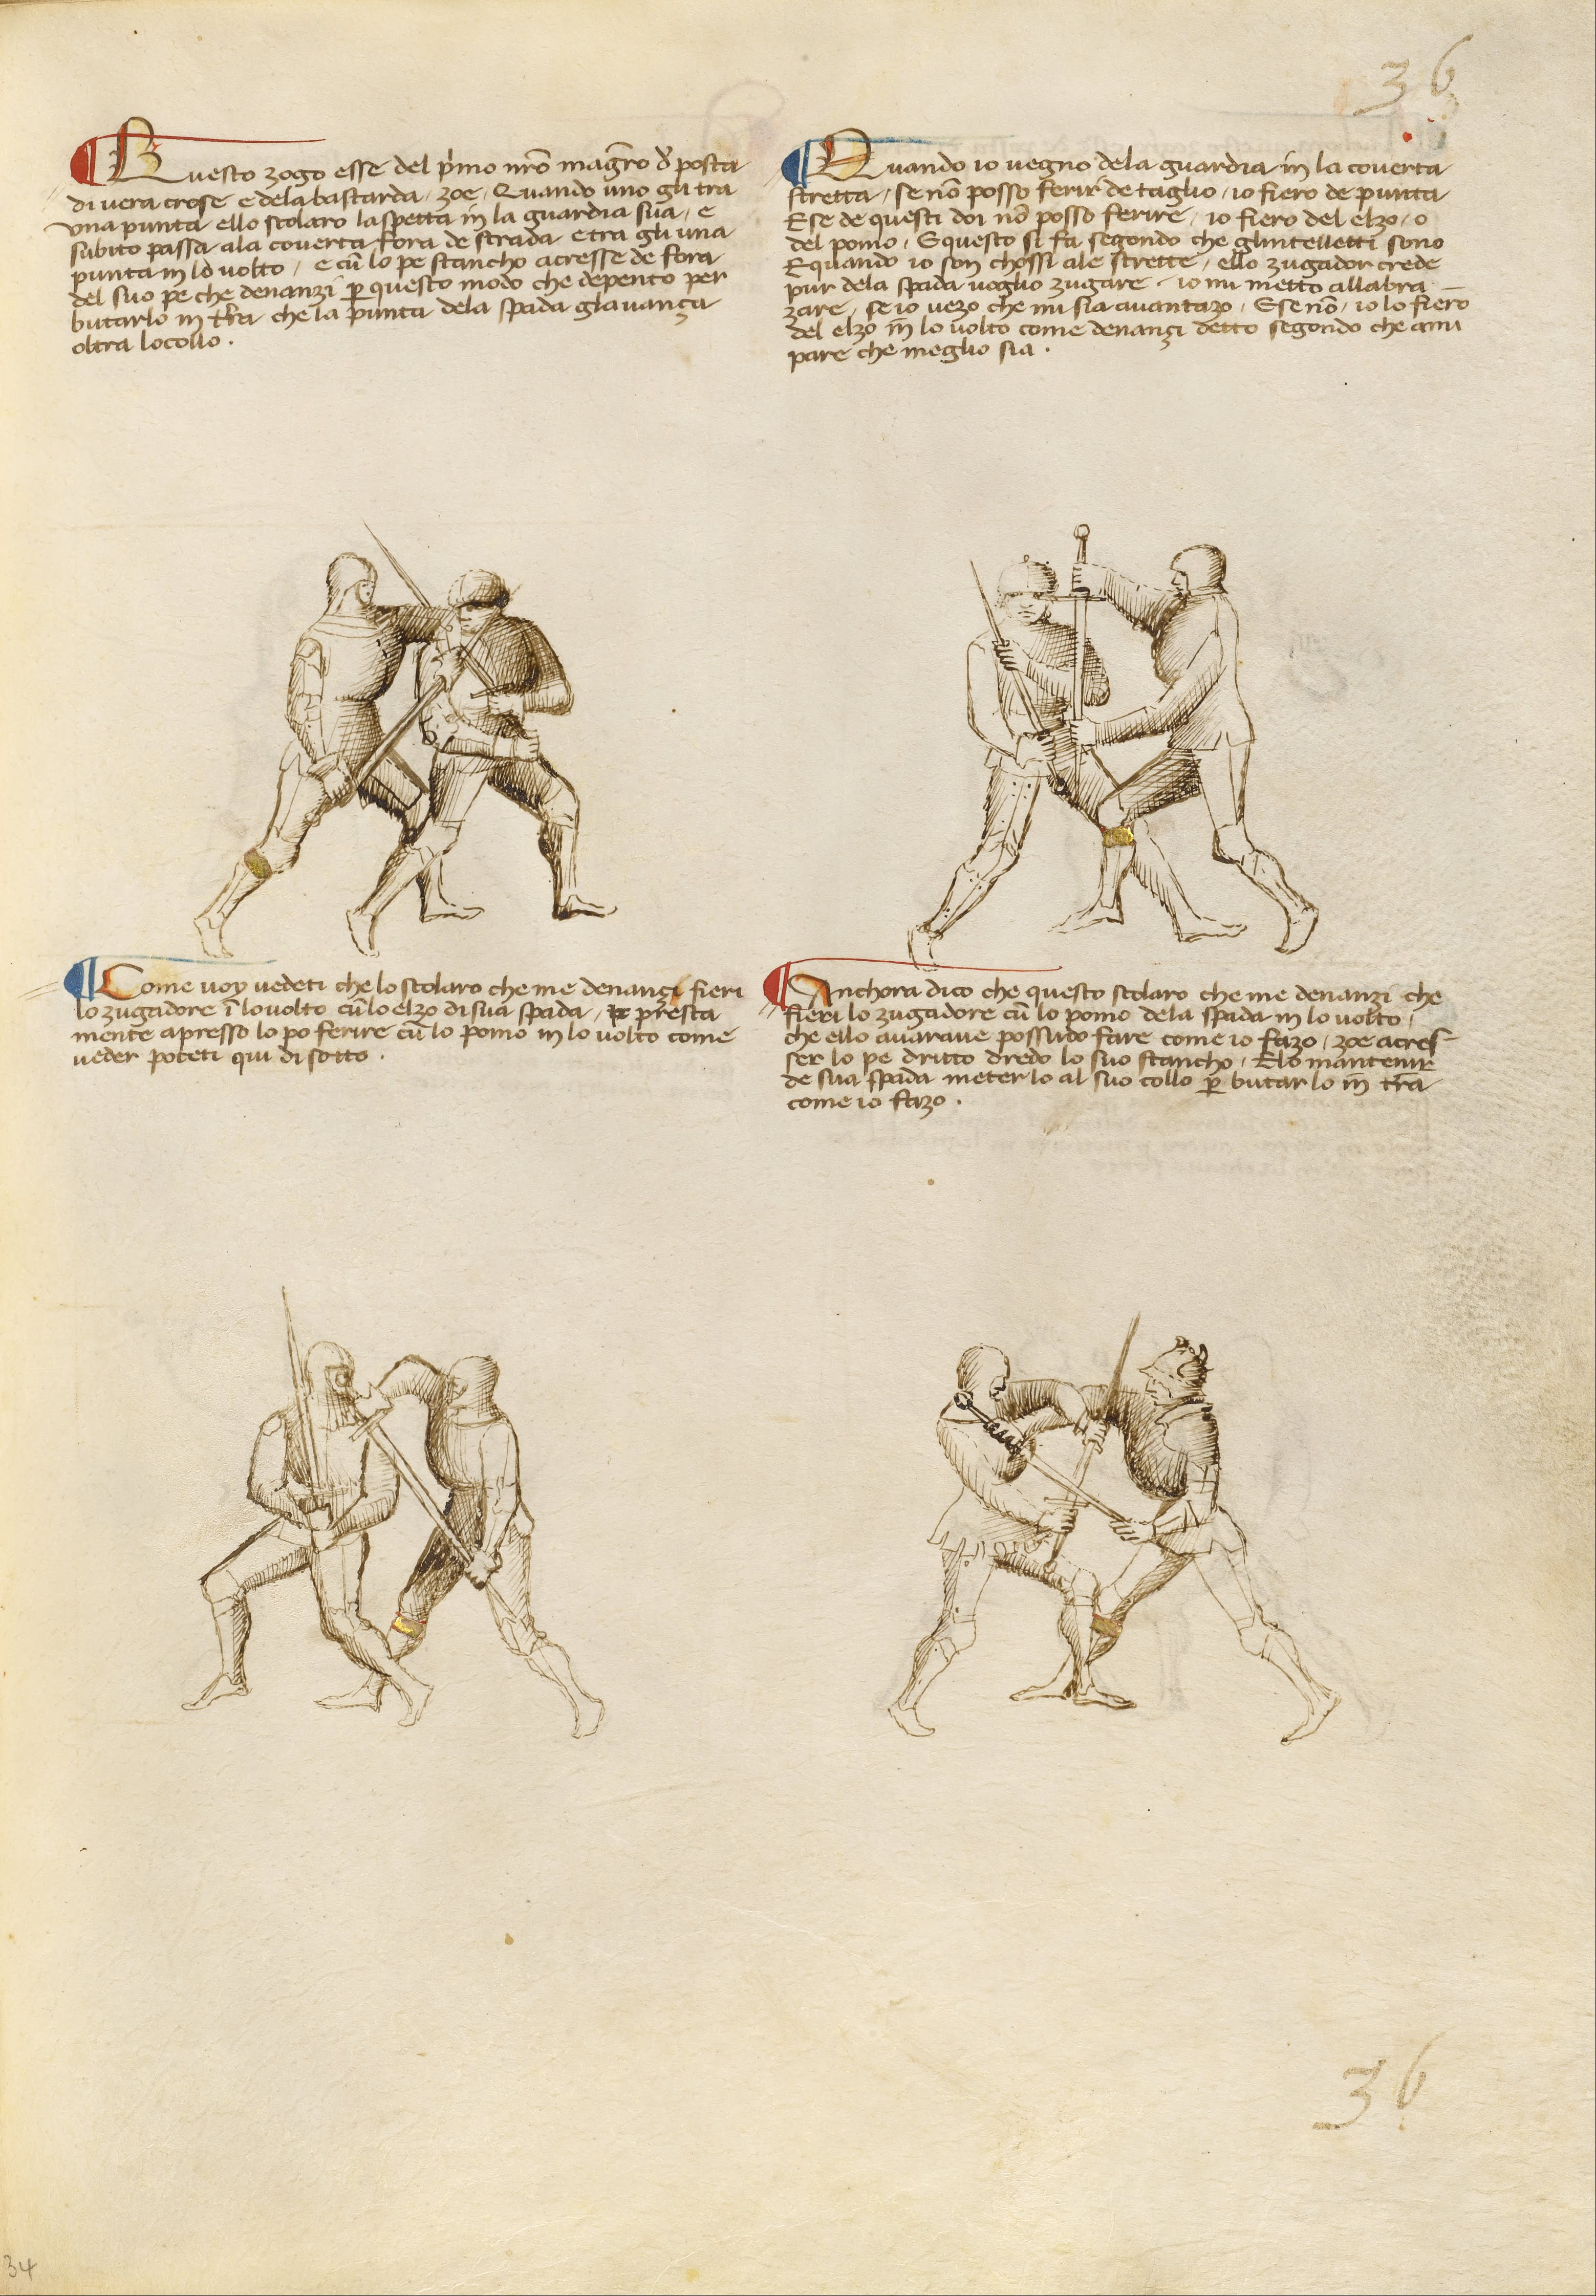 36
Questo zogo esse del p̃mo nr̃o magr̃o d̾ posta
di vera crose e dela bastarda, zoe, Quando uno gli tra
una punta ello scolaro la spetta in la guardia sua, e
subito passa ala coverta fora de strada e tra gli una
punta in lo volto, e cũ lo pe stancho acresse de fora
del suo pe che denanzi ꝑ questo modo che depento per
butarlo in tr̃a che la punta dela spada gl avança
oltra lo collo.
Quando io vegno dela guardia in la coverta
stretta, se nõ posso ferir̾ de taglio, io fiero de punta
E se de questi doi nõ posso ferire, io fiero del elzo, o
del pomo, E questo si fa segondo che gl intelletti sono
E quando io son chossi ale strette, ello zugador crede
pur dela spada voglio zugare, io mi metto all abra
zare, se io vezo che mi sia avantazo, E se nõ, io lo fiero
del elzo in lo volto come denançi detto segondo che a mi
pare che meglio sia.
Come voy vedeti che lo scolaro che me denançi fieri
lo zugadore ĩ lo volto cũ lo elzo di sua spada, presta
mente apresso lo po ferire cũ lo pomo in lo volto come
veder poteti qui di sotto.
Anchora dico che questo scolaro che me denanzi che
fieri lo zugadore cũ lo pomo de la spada in lo volto,
che ello avarave possudo fare come io fazo, zoe acres
ser lo pe dritto dredo lo suo stancho, E lo mantenir
de sua spada meter lo al suo collo ꝑ butar lo in tr̃a
come io fazo.
36
34